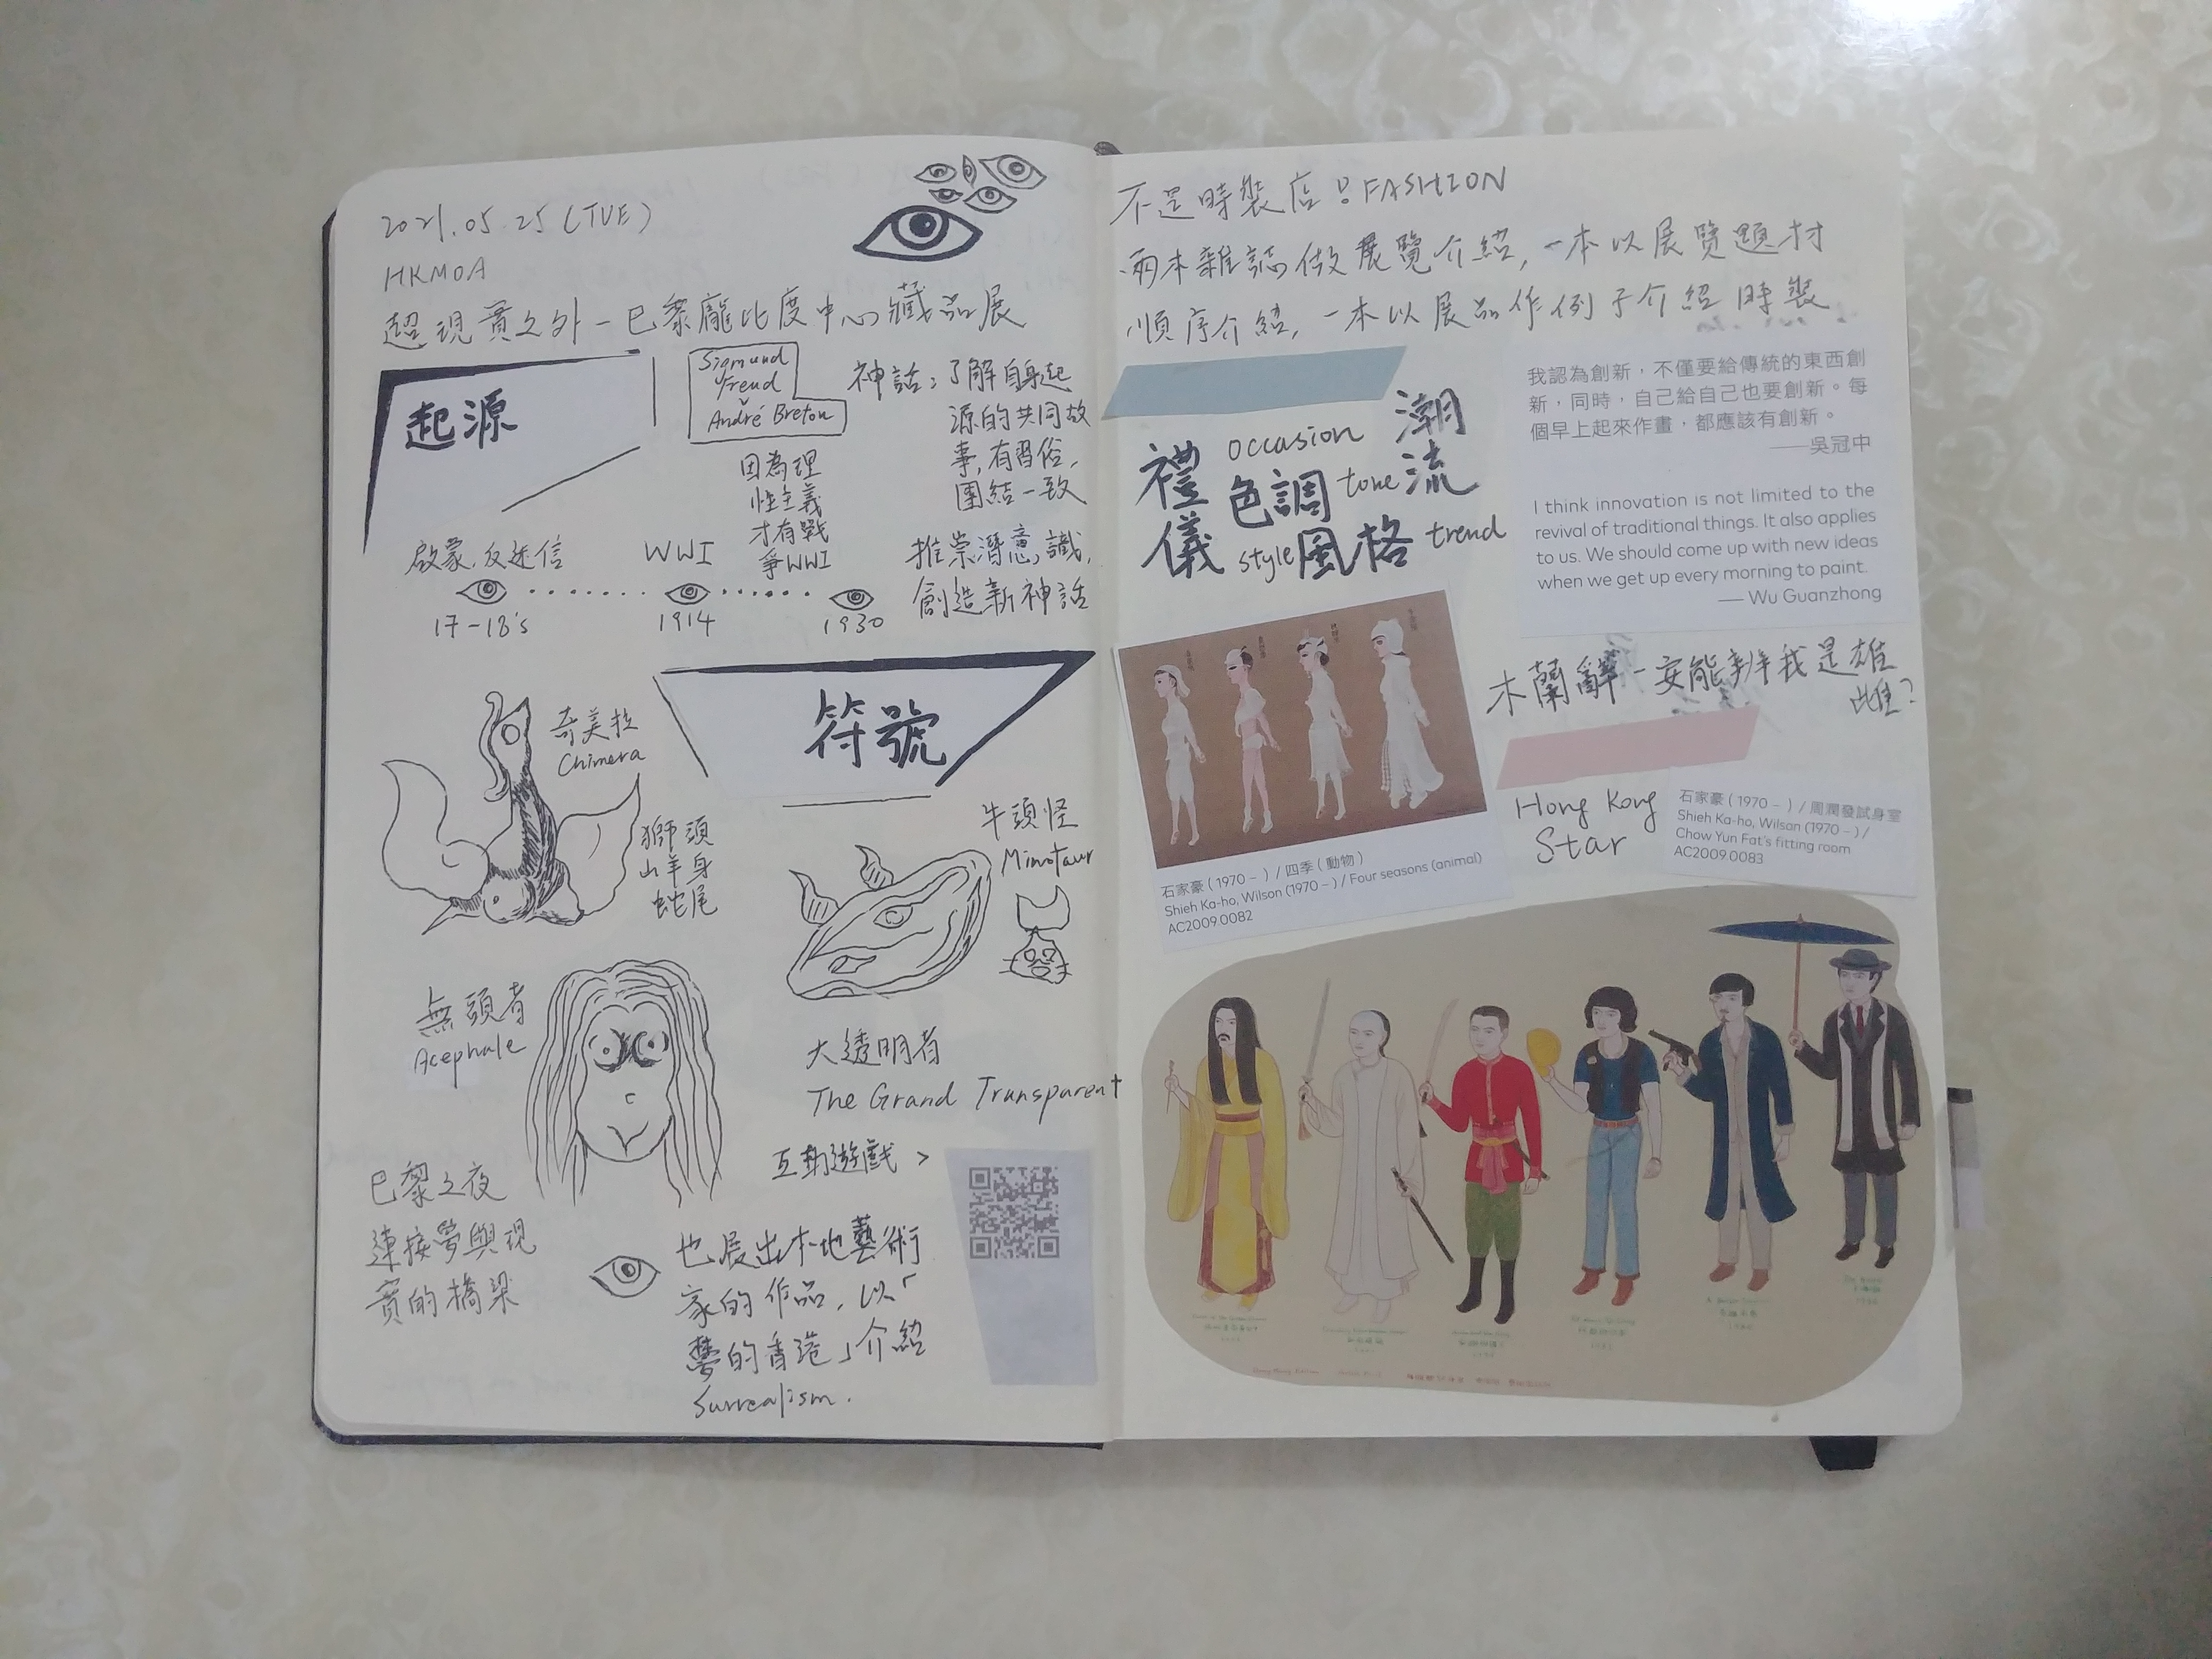 2021.05.25 (TUE)
HKMOA
超現實之外－巴黎龐比度中心藏品展
起源
Sigmund
Freud
André Breton
因為理
性主義
才有戰
爭WWI
神話：了解自身起
源的共同故
事，有習俗，
團結一致
推崇潛意識，
創造新神話
啟蒙．反迷信
WWI
17-18's
1914
1930
符號
奇美拉
Chimera
獅頭
山羊身
蛇尾
牛頭怪
Minotaur
無頭者
Acephale
大透明者
The Grand Transparent
互動遊戲 >
巴黎之夜
連接夢與現
實的橋梁
也展出本地藝術
家的作品，以「
夢的香港」介紹
Surrealism.
不是時裝店！FASHION
兩本雜誌做展覽介紹，一本以展覽題材
順序介紹，一本以展品作例子介紹時裝
禮儀
occasion
色調 tone
潮流
style 風格 trend
我認為創新，不僅要給傳統的東西創
新，同時，自己給自己也要創新。每
個早上起來作畫，都應該有創新。
——吳冠中
I think innovation is not limited to the
revival of traditional things. It also applies
to us. We should come up with new ideas
when we get up every morning to paint.
— Wu Guanzhong
木蘭辭－安能辨我是雄
雌？
石家豪（1970－）/ 四季（動物）
Shieh Ka-ho, Wilson (1970 –) / Four seasons (animal)
AC2009.0082
Hong Kong
Star
石家豪（1970－）/ 周潤發試身室
Shieh Ka-ho, Wilsan (1970 –) /
Chow Yun Fat's fitting room
AC2009.0083